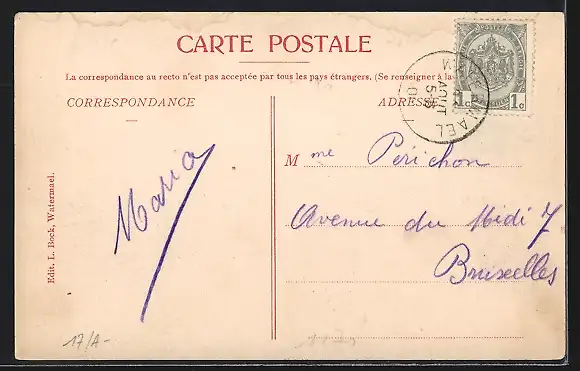 CARTE POSTALE
La correspondance au recto n'est pas acceptée par tous les pays étrangers. (Se renseigner à la
CORRESPONDANCE
ADRESSE
1c 1c
AOUT
Mme Périchon
Avenue du Midi 7
Bruxelles
Maria
Edit. L. Bock, Watermael.
17/A-